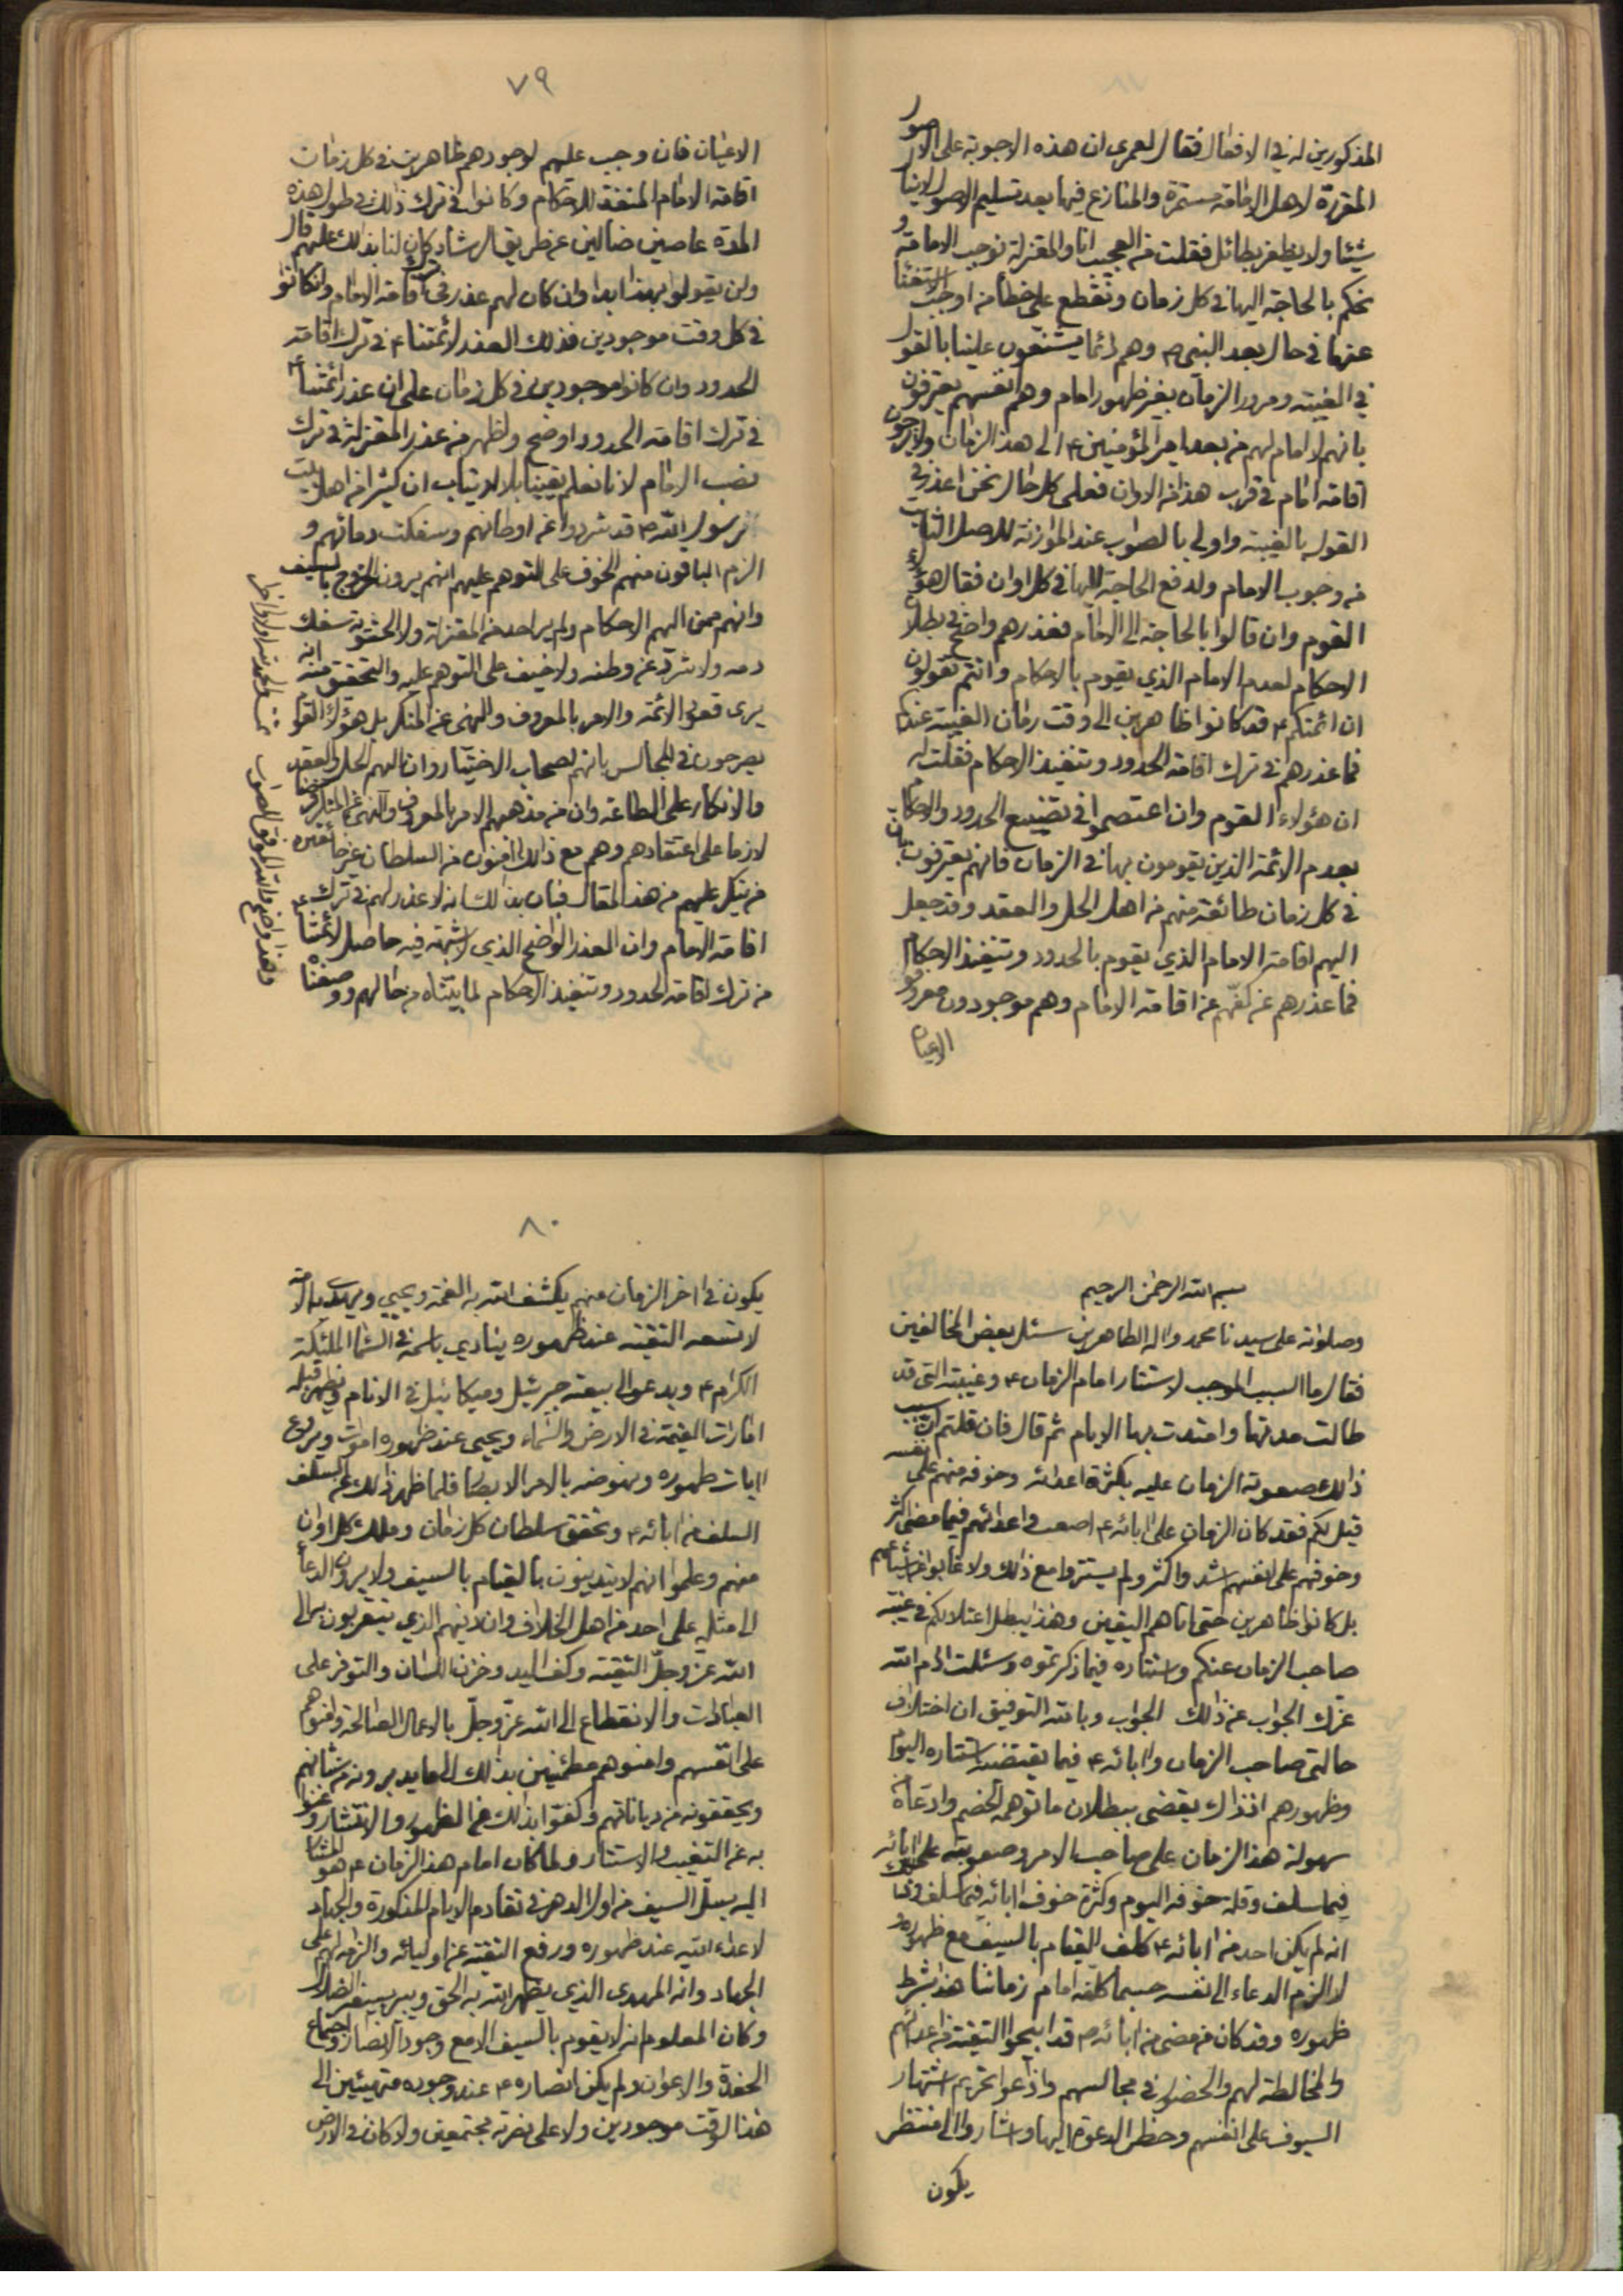 المذكورين له في الافعال فقال لعمرى ان هذه الاجوبة على الاصول
المقررة لاهل الامامة مستمرة والمنازع فيها بعد تسليم الاصول لا ينال
شيئا ولا يظفر بطائل فقلت من العجب انا والمعتزلة نوجب الامامة و
نحكم بالحاجة اليها في كل زمان ونقطع على خطأ من اوجب الاستغناء
عنها في حال بعد النبي ص وهم دائما يشنعون علينا بالقول
في الغيبة ومرور الزمان بغير ظهور امام وهم انفسهم يعترفون
بانهم لا امام لهم من بعد امير المؤمنين ع الى هذا الزمان ولا يرجون
اقامة امام في قرب هذا من الاوان فعلى كل حال نحن اعذر في
القول بالغيبة واولى بالصواب عند الموازنة للاصل الثابت
من وجوب الامام ولدفع الحاجة اليها في كل اوان فقال هؤلاء
القوم وان قالوا بالحاجة الى الامام فعذرهم واضح في بطلان
الاحكام لعدم الامام الذي يقوم بالاحكام وانتم تقولون
ان ائمتكم ع قد كانوا ظاهرين الى وقت زمان الغيبة عندكم
فما عذرهم في ترك اقامة الحدود وتنفيذ الاحكام فقلت له
ان هؤلاء القوم وان اعتصموا في تضييع الحدود والاحكام
بعدم الائمة الذين يقومون بها في الزمان فانهم يعترفون بان
في كل زمان طائفة منهم من اهل الحل والعقد وقد جعل
اليهم اقامة الامام الذي يقوم بالحدود وتنفيذ الاحكام
فما عذرهم عن كفهم عن اقامة الامام وهم موجودون معروفو
الاعيان
٧٩
الاعيان فان وجب عليهم لوجودهم ظاهرين في كل زمان
اقامة الامام المنفذ للاحكام وكانوا في ترك ذلك في طول هذه
المدة عاصين ضالين عن طريق الرشاد كان لنا بذلك عليهم قال
ولن يقولوا بهذا ابدا وان كان لهم عذر في ترك اقامة الامام وان كانوا
في كل وقت موجودين فذلك العذر لائمتنا ع في ترك اقامة
الحدود وان كانوا موجودين في كل زمان على ان عذر ائمتنا ع
في ترك اقامة الحدود اوضح واظهر من عذر المعتزلة في ترك
نصب الامام لانا نعلم يقينا بلا ارتياب ان كثيرا من اهل بيت
رسول الله ص قد شردوا عن اوطانهم وسفكت دمائهم و
الزم الباقون منهم الخوف على التوهم عليهم انهم يرون الخروج بالسيف
وانهم ممن اليهم الاحكام ولم ير احد من المعتزلة ولا الحشوية سفك
دمه ولا شرد عن وطنه ولا خيف على التوهم عليه والتحقق منه انه
يرى قعود الائمة والامر بالمعروف والنهى عن المنكر بل هؤلاء القوم
يصرحون في المجالس بانهم اصحاب الاختيار وان اليهم الحل والعقد
والانكار على الطاعة وان من مذهبهم الامر بالمعروف والنهى عن المنكر فرضا
لازما على اعتقادهم وهم مع ذلك امنون من السلطان غير خائفين
من نكير عليهم من هذا المقال فبان بذلك انه لا عذر لهم في ترك
اقامة الامام وان العذر الواضح الذي لا شبهة فيه حاصل لائمتنا ع
من ترك اقامة الحدود وتنفيذ الاحكام لما بيناه من حالهم ووصفناه
وهذا واضح والله الموفق للصواب
بسم الله الرحمن الرحيم
وصلواته على سيدنا محمد واله الطاهرين سئل بعض المخالفين
فقال ما السبب الموجب لاستتار امام الزمان ع وغيبته التي قد
طالت مدتها وامتدت بها الايام ثم قال فان قلتم ان سبب
ذلك صعوبة الزمان عليه بكثرة اعدائه وخوفه منهم على نفسه
قيل لكم فقد كان الزمان على ابائه ع اصعب واعدائهم فيما مضى اكثر
وخوفهم على انفسهم اشد واكثر ولم يستتروا مع ذلك ولا غابوا عن اشياعهم
بل كانوا ظاهرين حتى اتاهم اليقين وهذا يبطل اعتلالكم في غيبة
صاحب الزمان عنكم واستتاره فيما ذكرتموه وسئلت ادام الله
عزك الجواب عن ذلك الجواب وبالله التوفيق ان اختلاف
حالتي صاحب الزمان وابائه ع فيما يقتضيه استتاره اليوم
وظهورهم اذ ذاك يقضى ببطلان ما توهمه الخصم وادعاه
سهولة هذا الزمان على صاحب الامر وصعوبته على ابائه
فيما سلف وقلة خوفه اليوم وكثرة خوف ابائه فيما سلف وذلك
انه لم يكن احد من ابائه ع كلف القيام بالسيف مع ظهوره
لا الزم الدعاء الى نفسه حسبما كلفه امام زماننا هذا بشرط
ظهوره وقد كان من مضى من ابائه ص قد ابيحوا التقية من اعدائهم
والمخالطة لهم والحضور في مجالسهم واذاعوا تحريم اشتهار
السيوف على انفسهم وحظر الدعوة اليها واشاروا الى منتظر
يكون
٨٠
يكون في اخر الزمان منهم يكشف الله به الغمة ويحيى ويهدى به الامة
لا تسعه التقية عند ظهوره ينادي باسمه في السماء الملئكة
الكرام ع ويدعو الى بيعته جبرئيل وميكائيل في الانام ويظهر قبله
امارات القيمة في الارض والسماء ويحيى عند ظهوره اموات ويروع
ايات ظهوره ونهوضه بالامر الابصار فلما ظهر ذلك عن السلف
السلف من ابائه ع وتحقق سلطان كل زمان وملك كل اوان
منهم وعلموا انهم لا يتدينون بالقيام بالسيف ولا يرون الدعاء
الى مثله على احد من اهل الخلاف وان دينهم الذي يتقربون به الى
الله عز وجل التقية وكف اليد وخزن اللسان والتوفر على
العبادات والانقطاع الى الله عز وجل بالاعمال الصالحة وامنوهم
على انفسهم وامنوهم مطمئنين بذلك الى ما يدبرونه من شانهم
ويحققونه من دياناتهم وكفوا بذلك عن الظهور والانتشار وغنوا
به عن التغيب والاستتار ولما كان امام هذا الزمان ع هو المشار
اليه بسل السيف من اول الدهر في تقادم الايام المذكورة والجهاد
لاعداء الله عند ظهوره ورفع التقية عن اوليائه والزامه لهم على
الجهاد وانه المهدى الذي يظهر الله به الحق ويبير بسيفه الضلال
وكان المعلوم انه لا يقوم بالسيف الا مع وجود الانصار واجتماع
الحفدة والاعوان ولم يكن انصاره ع عند وجوده متهيئين الى
هذا الوقت موجودين ولا على نصرته مجتمعين ولا كان في الارض